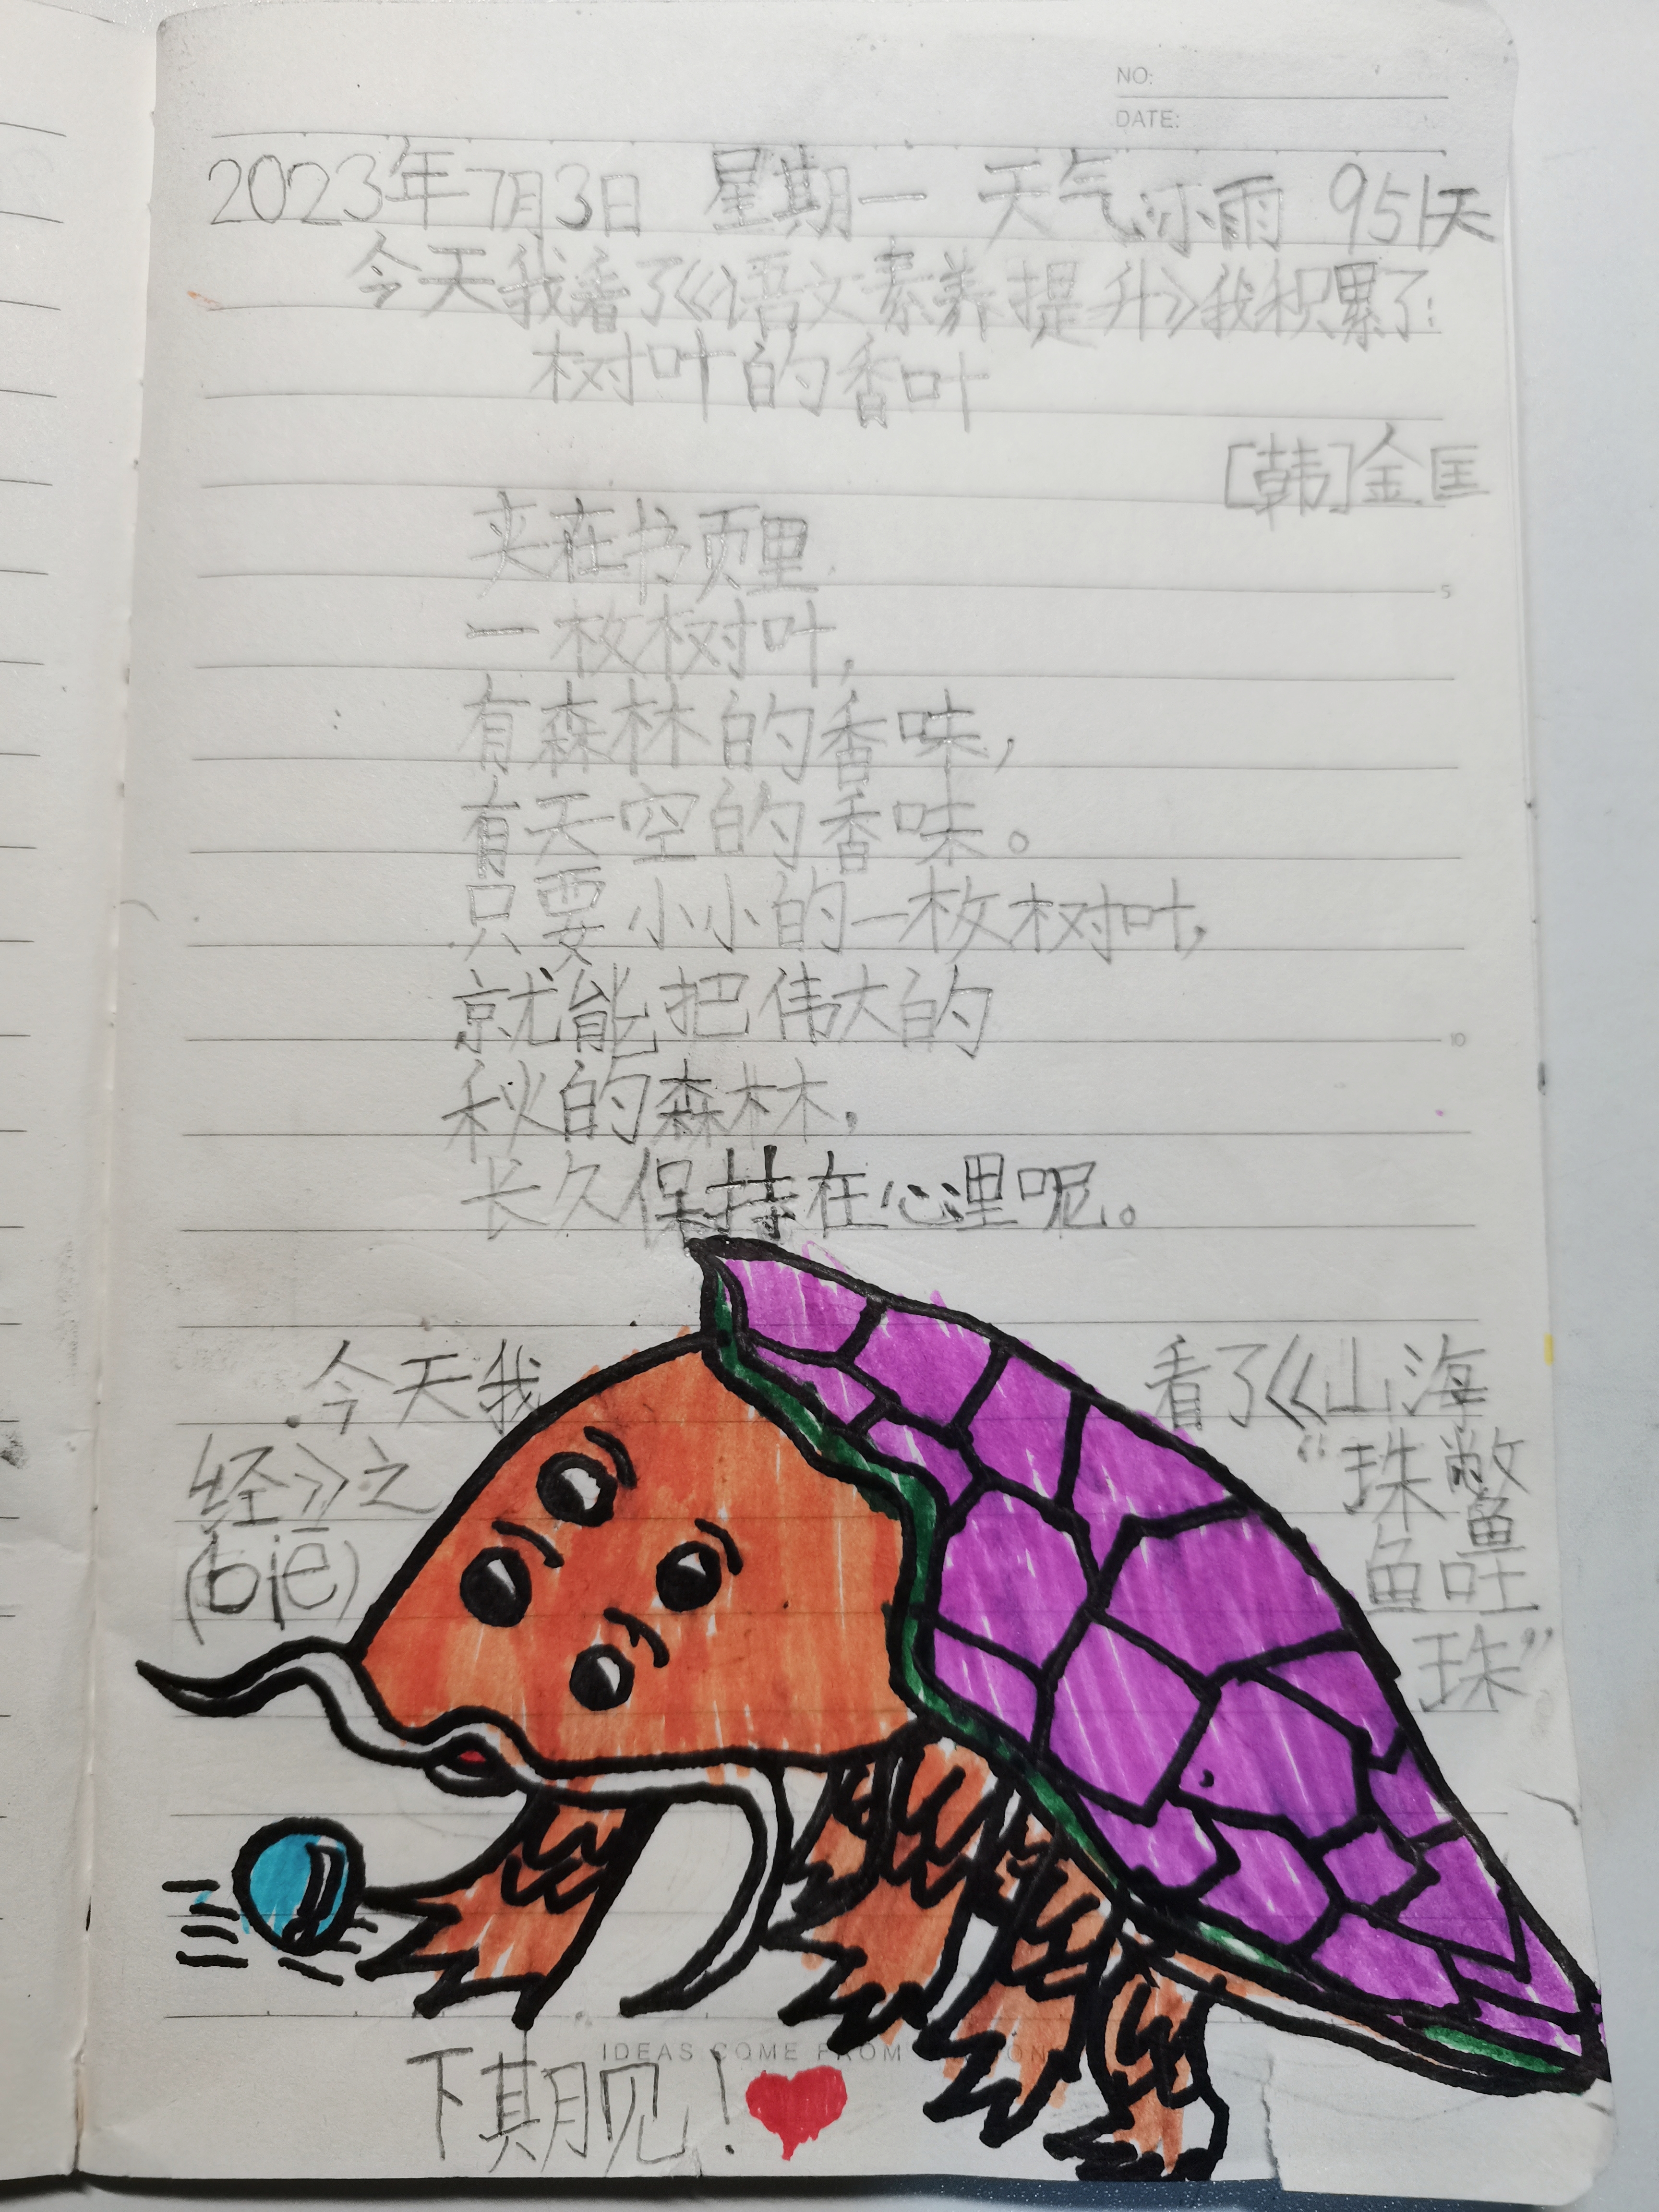 NO:
DATE:
2023年7月3日 星期一 天气小雨 951天
今天我看了《语文素养提升》我积累了:
树叶的香叶
[韩]金匡
夹在书页里
一枚树叶,
有森林的香味,
有天空的香味。
只要小小的一枚树叶,
就能把伟大的
秋的森林,
长久保持在心里呢。
今天我 看了《山海
经》之 “珠鳖
(biē) 鱼吐
珠”
IDEAS COME FROM
下期见!
5
10